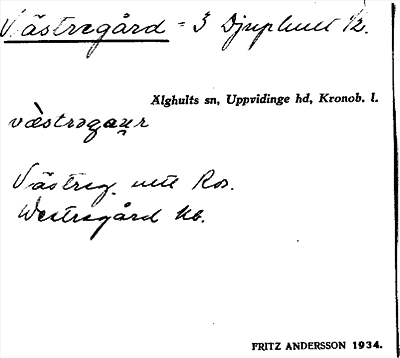 Västregård = 3 Djuphult 1/2.
Älghults sn, Uppvidinge hd, Kronob. l.
væ̀strəgaṵr
Västreg. utt Ros.
Westregård Kb.
FRITZ ANDERSSON 1934.